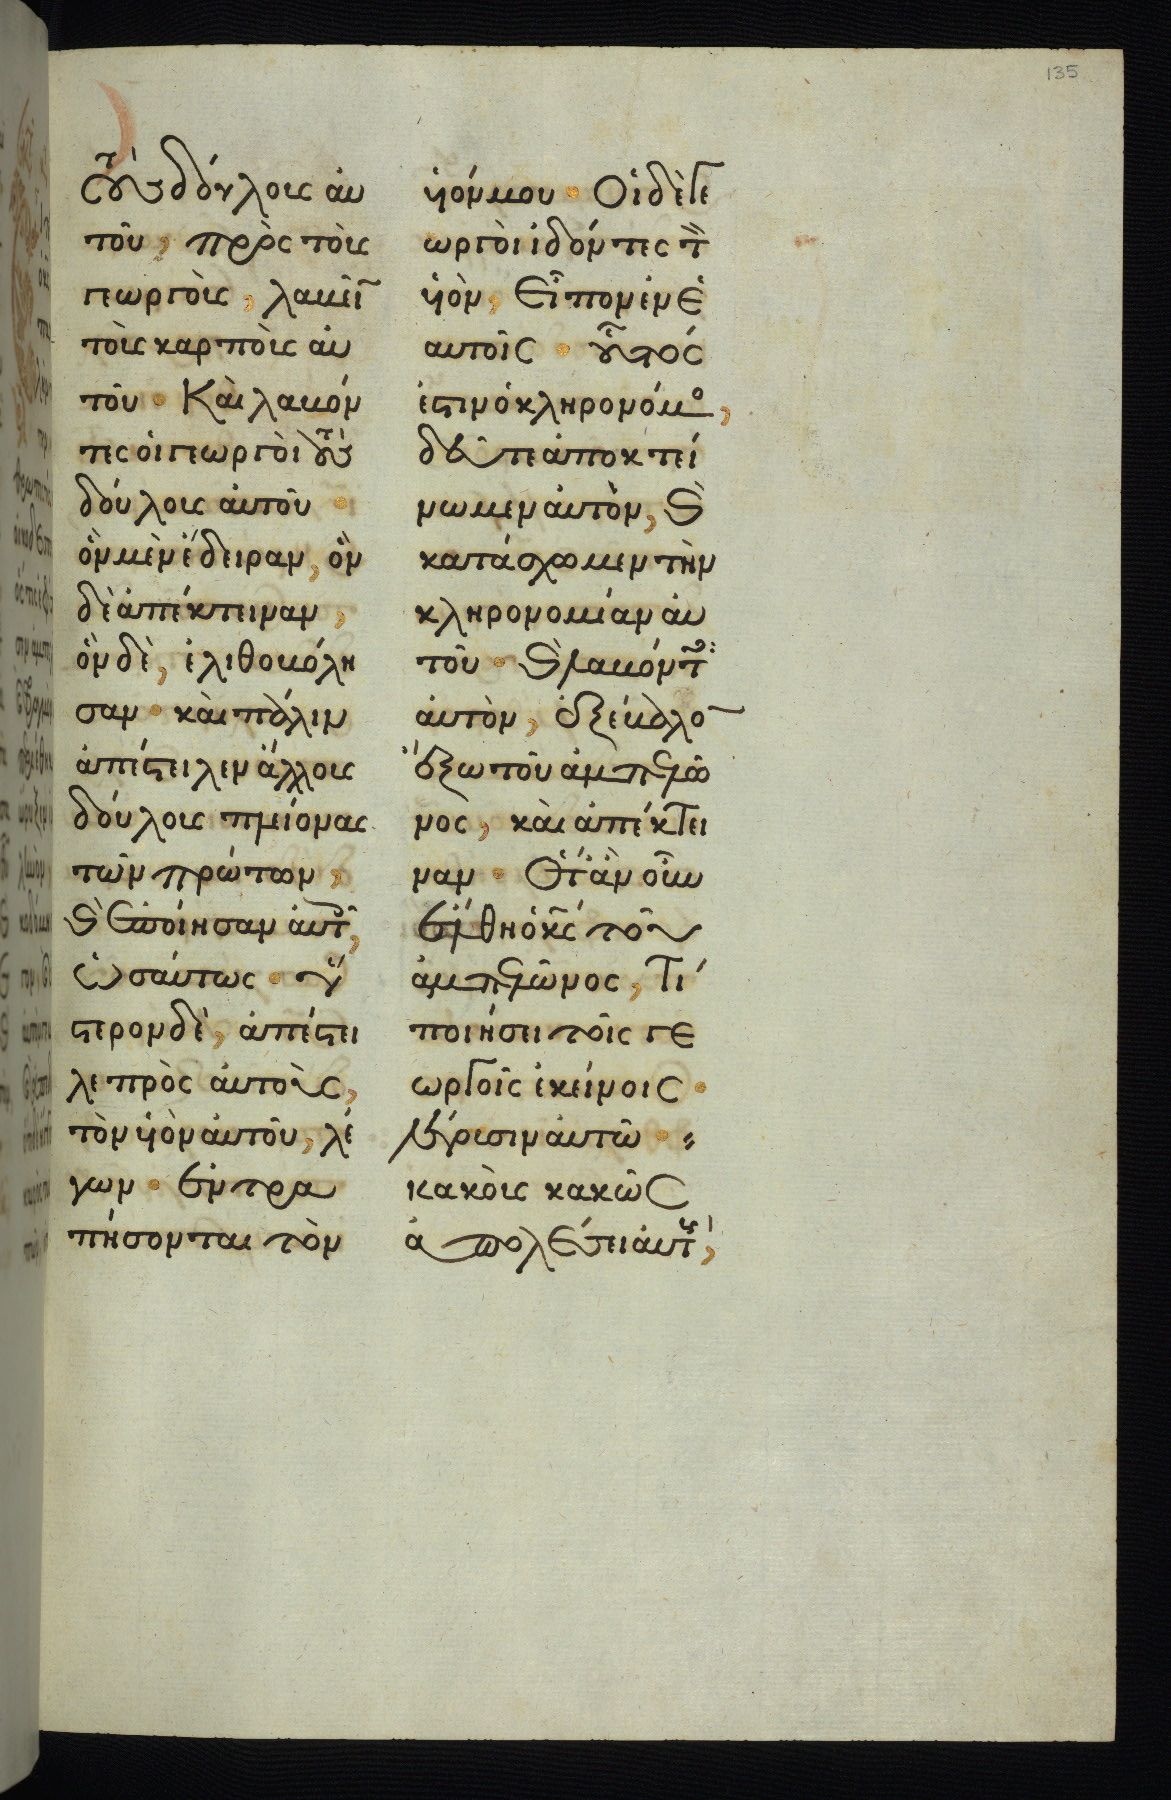 135
τοὺς δούλους αὐ
τοῦ, πρὸς τοὺς
γεωργοὺς, λαβεῖν
τοὺς καρποὺς αὐ
τοῦ · Καὶ λαβόν
τες οἱ γεωργοὶ τοὺς
δούλους αὐτοῦ ·
ὃν μὲν ἔδειραν, ὃν
δὲ ἀπέκτειναν,
ὃν δὲ, ἐλιθοβόλη
σαν · καὶ πάλιν
ἀπέστειλεν ἄλλους
δούλους πλείονας
τῶν πρώτων,
καὶ ἐποίησαν αὐτοῖς,
ὡσαύτως · ὕ
στερον δὲ, ἀπέστει
λε πρὸς αὐτοὺς,
τὸν ὑὸν αὐτοῦ, λέ
γων · ἐντρα
πήσονται τὸν
ὑόν μου · Οἱ δὲ γε
ωργοὶ ἰδόντες τὸν
ὑὸν, Εἶπον ἐν ἑ
αυτοῖς · οὗτός
ἐστιν ὁ κληρονόμος,
δεῦτε ἀποκτεί
νωμεν αὐτὸν, καὶ
κατάσχωμεν τὴν
κληρονομίαν αὐ
τοῦ · καὶ λαβόντες
αὐτὸν, ἐξέβαλον
ἔξω τοῦ ἀμπελῶ
νος, καὶ ἀπέκτει
ναν · Ὅταν οὖν
ἔλθη ὁ κς τοῦ
ἀμπελῶνος, τί
ποιήσει τοῖς γε
ωργοῖς ἐκείνοις ·
λέγουσιν αὐτῶ ·
κακοὺς κακῶς
ἀπολέσει αὐτοὺς,